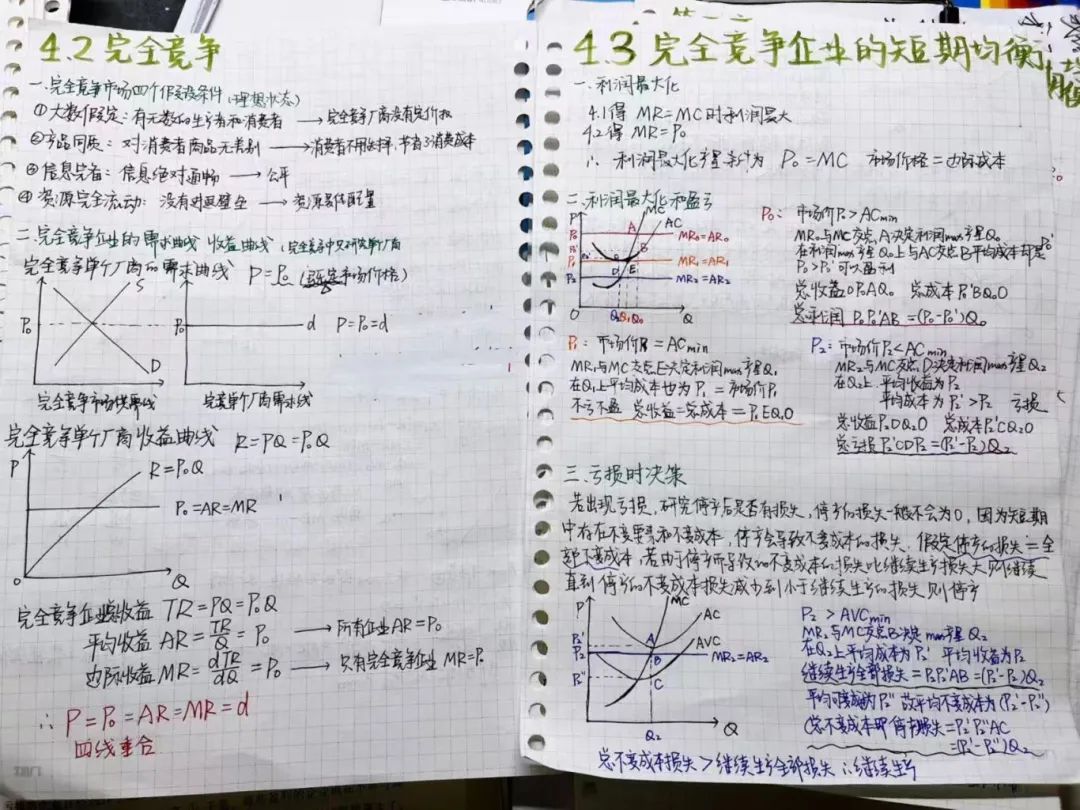 4.2 完全竞争
一.完全竞争市场四个假设条件(理想状态)
①大数假定:有无数的生产者和消费者 → 完全竞争厂商没有定价权
②产品同质:对消费者商品无差别 → 消费者不用选择,节省了消费成本
③信息完备:信息绝对通畅 → 公平
④资源完全流动:没有对西壁垒 → 资源最优配置
二.完全竞争企业的需求曲线 收益曲线
完全竞争单个厂商的需求曲线 P=P₀ (市场价格)
P₀ S D
P₀ d P=P₀=d
完全竞争市场供需线
完竞单个厂商需求线
完全竞争单个厂商收益曲线 R=PQ=P₀Q
P
R=P₀Q
P₀=AR=MR
O Q
完全竞争企业总收益 TR=PQ=P₀Q
平均收益 AR=TR/Q=P₀ → 所有企业AR=P₀
边际收益 MR=dTR/dQ=P₀ → 只有完全竞争企业 MR=P₀
∴ P=P₀=AR=MR=d
四线重合
4.3 完全竞争企业的短期均衡
一.利润最大化
4.1得 MR=MC时利润最大
4.2得 MR=P₀
∴ 利润最大化产量条件为 P₀=MC 市场价格=边际成本
二.利润最大化和盈亏
P MC AC
P₀ A MR₀=AR₀
P₀' B
P₁ E MR₁=AR₁
P₂ D MR₂=AR₂
O Q₂Q₁Q₀ Q
P₀: 市场价P₀>ACmin
MR₀与MC交点A决定利润max产量Q₀
在利润max产量Q₀上与AC交点B平均成本却是P₀'
P₀>P₀'可以盈利
总收益OP₀AQ₀ 总成本P₀'BQ₀O
总利润 P₀P₀'AB=(P₀-P₀')Q₀
P₁: 市场价P₁=ACmin
MR₁与MC交点E决定利润max产量Q₁
在Q₁上平均成本也为P₁=市场价P₁
不亏不盈 总收益=总成本=P₁EQ₁O
P₂: 市场价P₂<ACmin
MR₂与MC交点D决定利润max产量Q₂
在Q₂上 平均收益为P₂
平均成本为P₂'>P₂ 亏损
总收益P₂DQ₂O 总成本P₂'CQ₂O
总亏损P₂'CDP₂=(P₂'-P₂)Q₂
三.亏损时决策
若出现亏损,研究停产后是否有损失,停产的损失一般不会为0,因为短期
中存在不变要素和不变成本,停产会导致不变成本的损失.假定停产的损失=全
部不变成本,若由于停产所导致的不变成本的损失比继续生产损失大则继续
直到停产的不变成本损失减少到小于继续生产的损失则停产
P MC AC
AVC
P₂' A
P₂ B MR₂=AR₂
P₂'' C
Q₂ Q
P₂>AVCmin
MR₂与MC交点B决定max产量Q₂
在Q₂上平均成本为P₂' 平均收益为P₂
继续生产全部损失=P₂P₂'AB=(P₂'-P₂)Q₂
平均可变成本为P₂'' 故平均不变成本为(P₂'-P₂'')
总不变成本即停产损失=P₂'P₂''AC
=(P₂'-P₂'')Q₂
总不变成本损失>继续生产全部损失 ∴继续生产